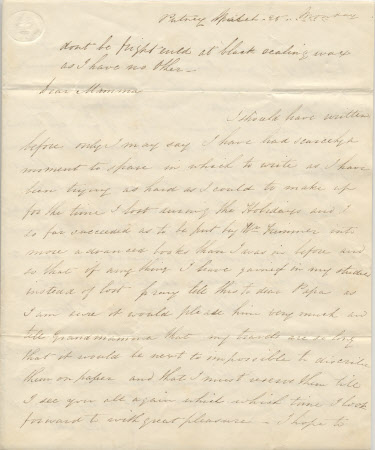 Putney March 20
dont be frightened at black sealing wax
as I have no other _
Dear Mamma
I should have written
before only I may say I have had scarcely a
moment to spare in which to write as I have
been trying as hard as I could to make up
for the time I lost during the Holidays and I
so far succeeded as to be put by Mr into
more advanced books than I was in before and
so that if any thing I have gained in my studies
instead of lost pray tell this to dear Papa as
I am sure it would please him very much and
tell Grandmamma that my travels are so long
that it would be next to impossible to discribe
them on paper and that I must reserve them till
I see you all again which which time I look
forward to with great pleasure _ I hope to